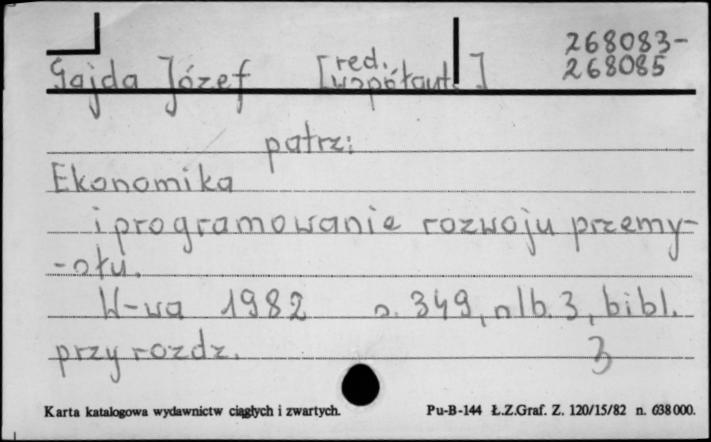 268083-
268085
Gajda Józef [red. współaut.]
patrz:
Ekonomika
i programowanie rozwoju przemy-
-słu.
W-wa 1982 s. 349, nlb. 3, bibl.
przy rozdz. 3
Karta katalogowa wydawnictw ciągłych i zwartych. Pu-B-144 Ł.Z.Graf. Z. 120/15/82 n. 038000.